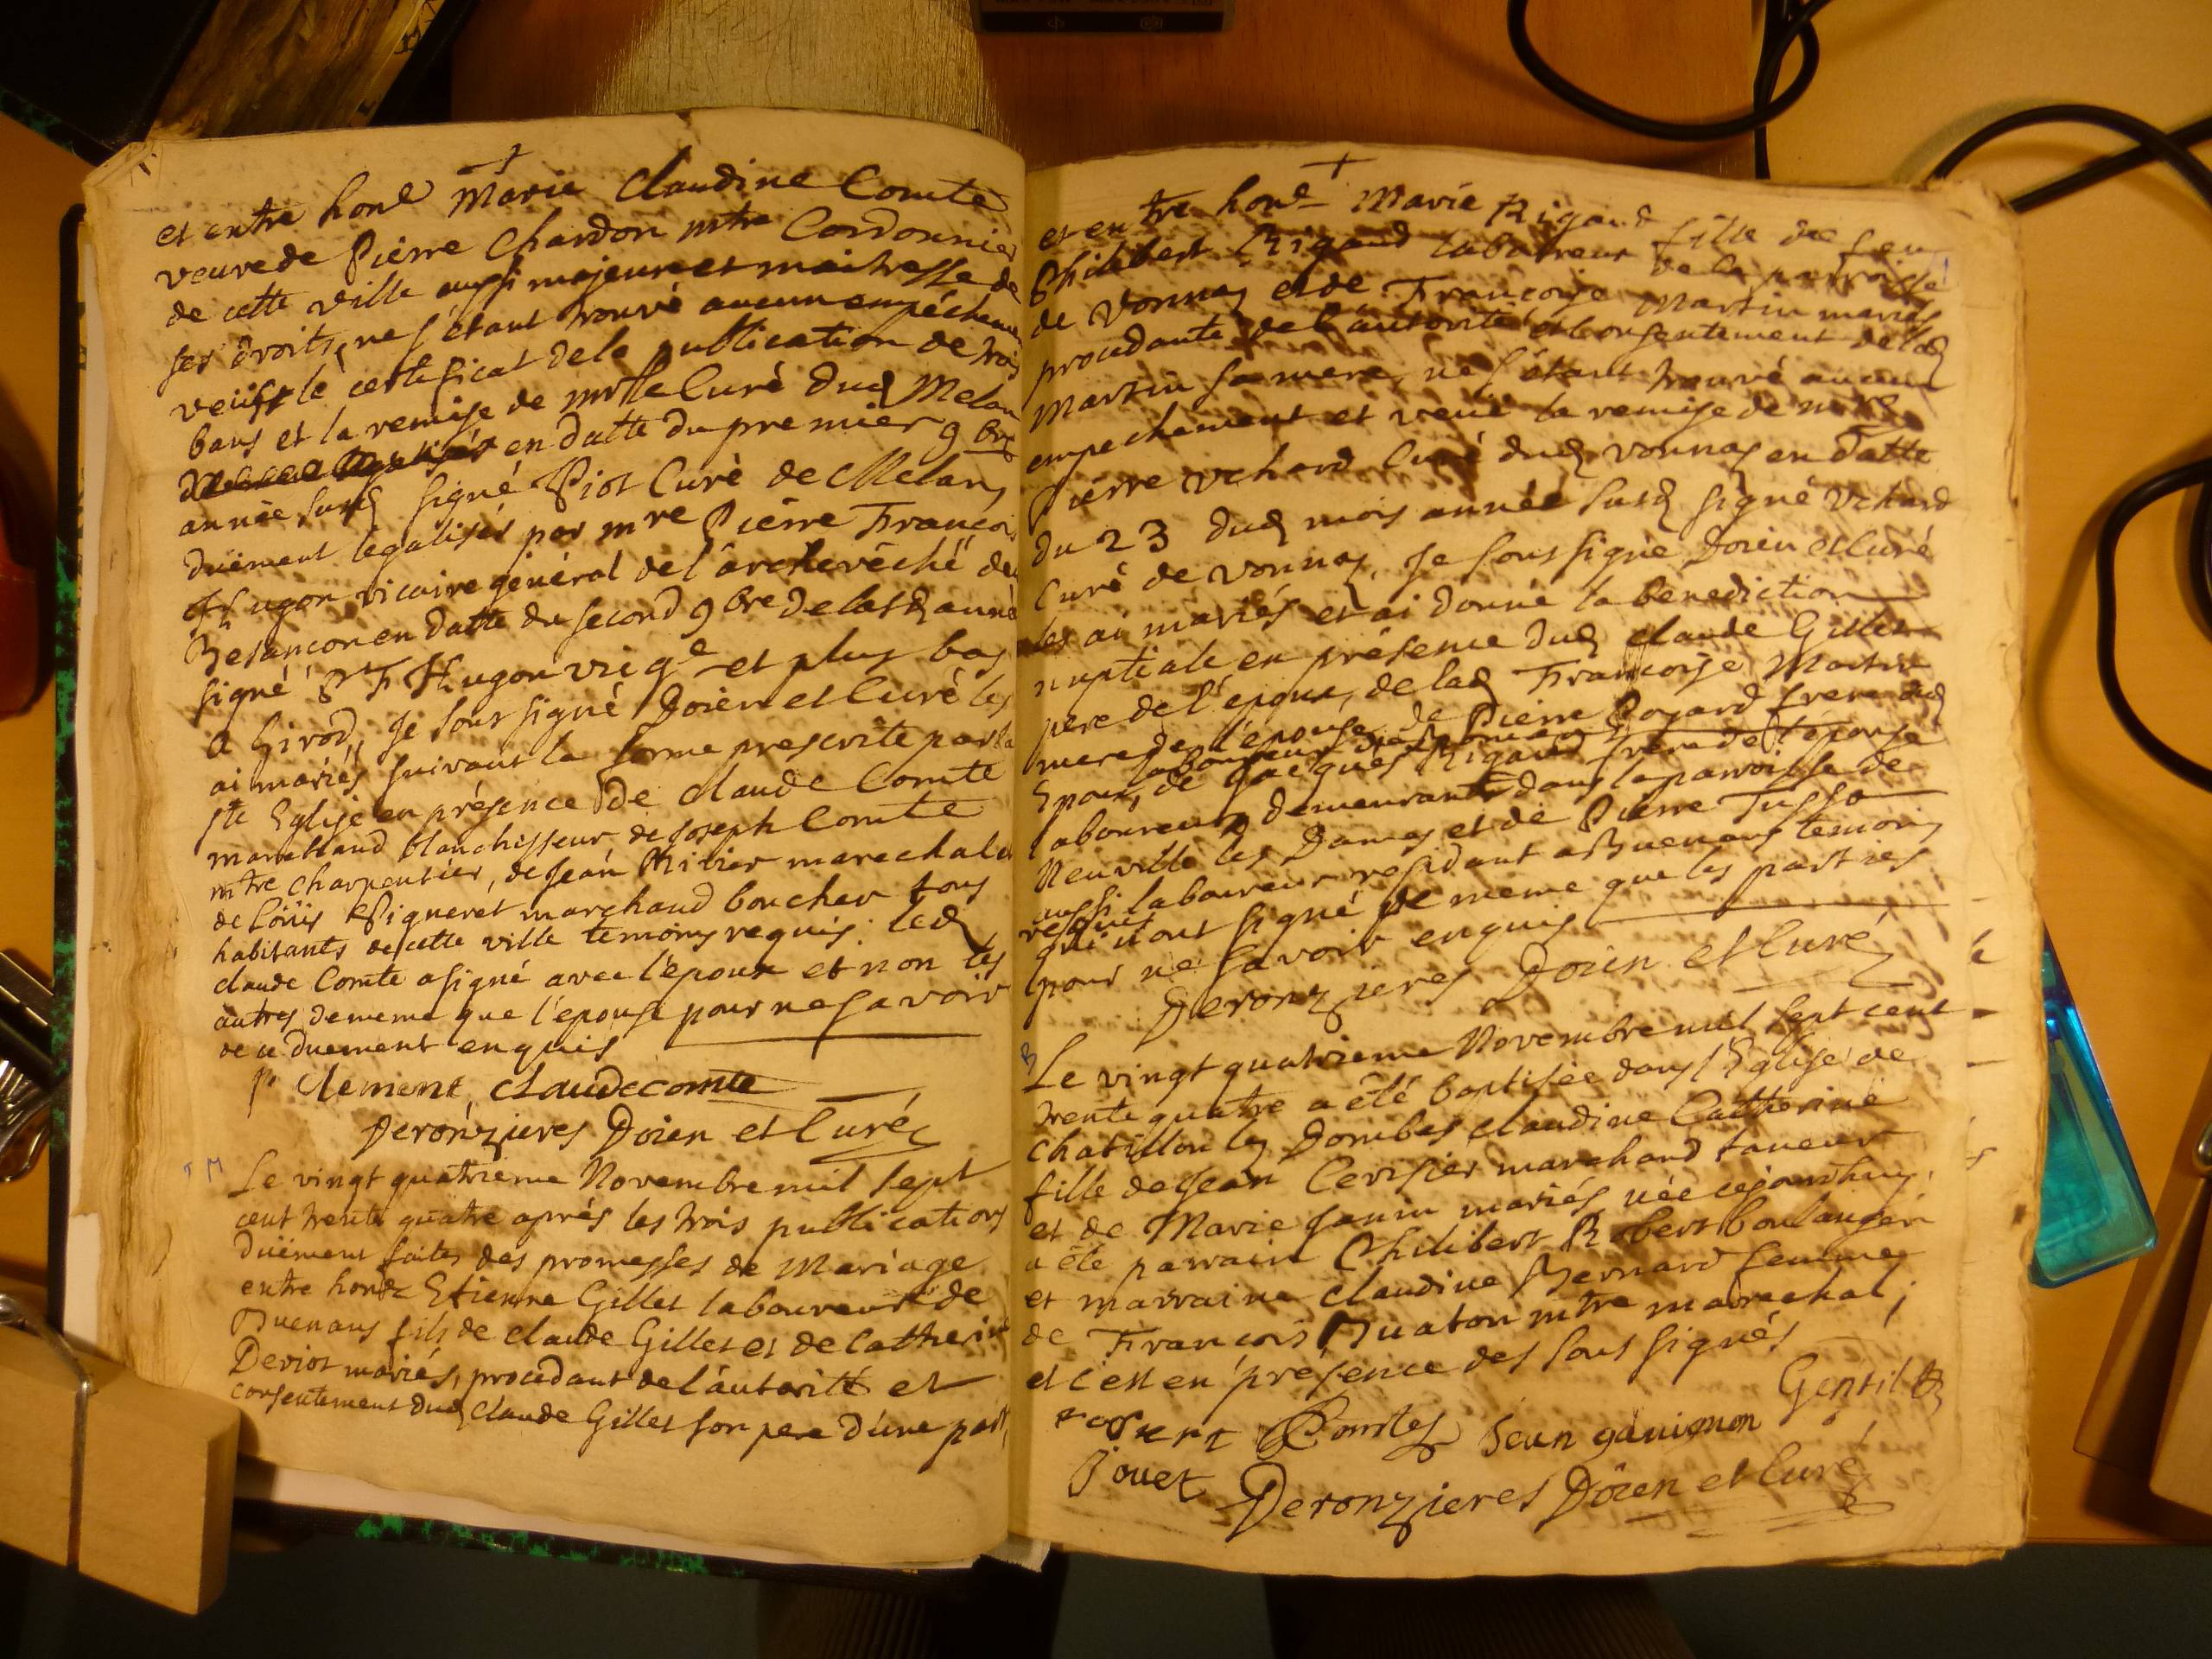 et entre hon^e Marie Claudine Comte
veuve de Pierre Chardon mtre Cordonnier
de cette ville aussi majeure et maitresse de
ses droits, ne s'étant trouvé aucun empéchem
veüe le certificat de la publication de trois
bans et la remise de Curé dud Melan
en datte du premier 9 bre
année susd signé Piot Curé de Melan,
düement legalisés par mre Pierre François
Hugon vicaire général de l'archevéché de
Besançon en datte du second 9 bre de lasd année
signé P F Hugon vic g^e et plus bas
Girod, Je sous signé Doien et Curé les
ai mariés suivant la forme prescrite par la
ste Eglise en présence de Claude Comte
marchand blanchisseur, de Joseph Comte
mtre Charpentier, de Jean Rivier marechal et
de Loüis Pigneret marchand boucher tous
habitants de cette ville temoins requis. led
Claude Comte a signé avec l'epoux et non les
autres de meme que l'epouse pour ne savoir
de ce duement enquis
Clement, Claude comte
Deronzieres Doien et Curé
M
Le vingt quatrieme Novembre mil sept
cent trente quatre aprés les trois publications
düement faites des promesses de Mariage
entre hon^e Etienne Gillet laboureur de
Buenans fils de Claude Gillet et de Catherine
Deriot mariés, procedant de l'autorité et
consentement dud Claude Gillet son pere d'une part,
et entre hon^e Marie Rigaud fille de feu
Philibert Rigaud laboureur de la parroisse
de Vonnas et de Françoise Martin mariés
procedante de l'autorité et consentement de lad
Martin sa mere, ne s'étant trouvé aucun
empechement et veüe la remise de mre
Pierre Vchard Curé dud Vonnas en datte
du 23 dud mois année susd signé Vchard
Curé de Vonnas, Je sous signé Doien et Curé
les ai mariés et ai donné la benediction
nuptiale en présence dud Claude Gillet
pere de l'epoux, de lad Françoise Martin
mere de l'epouse, de Pierre Poyard frere dud
Epoux, de Jacques Rigaud frere de l'épouse
laboureurs demeurants dans la parroisse de
Neuville les Dames et de Pierre
aussi laboureur residant a Buenans temoins
requis
qui n'ont signé de meme que les parties
pour ne savoir enquis
Deronzieres Doien et Curé
B
Le vingt quatrieme Novembre mil sept cent
trente quatre a été baptisée dans l'Eglise de
Chatillon les Dombes Claudine Catherine
fille de Jean Cerisier marchand taneur
et de Marie Janin mariés, née cejourdhuy,
a été parrain Philibert Robert boulanger
et marraine Claudine Bernard femme
de François Buaton mtre marechal,
et c'est en présence des sous signés
Gentil
Jean gauignon
Jouet
Deronzieres Doien et Curé